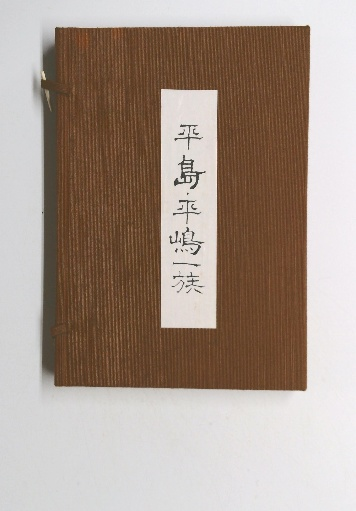 平島・平嶋一族